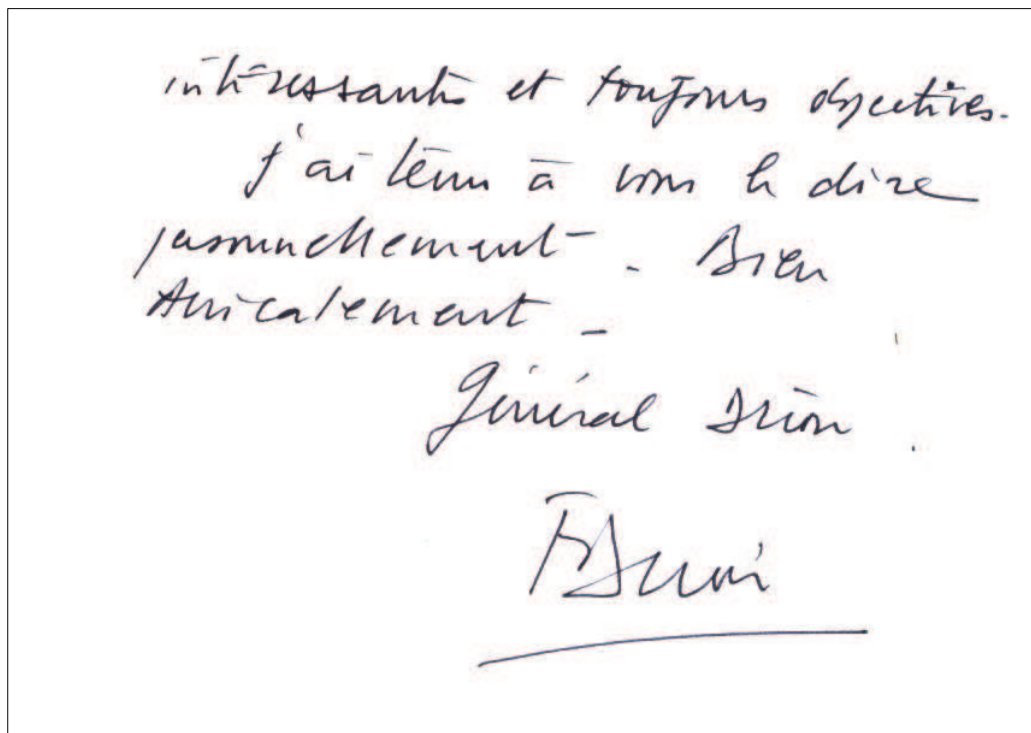 intéressantes et toujours objectives.
J'ai tenu à vous le dire
personnellement. Bien
Amicalement -
Général